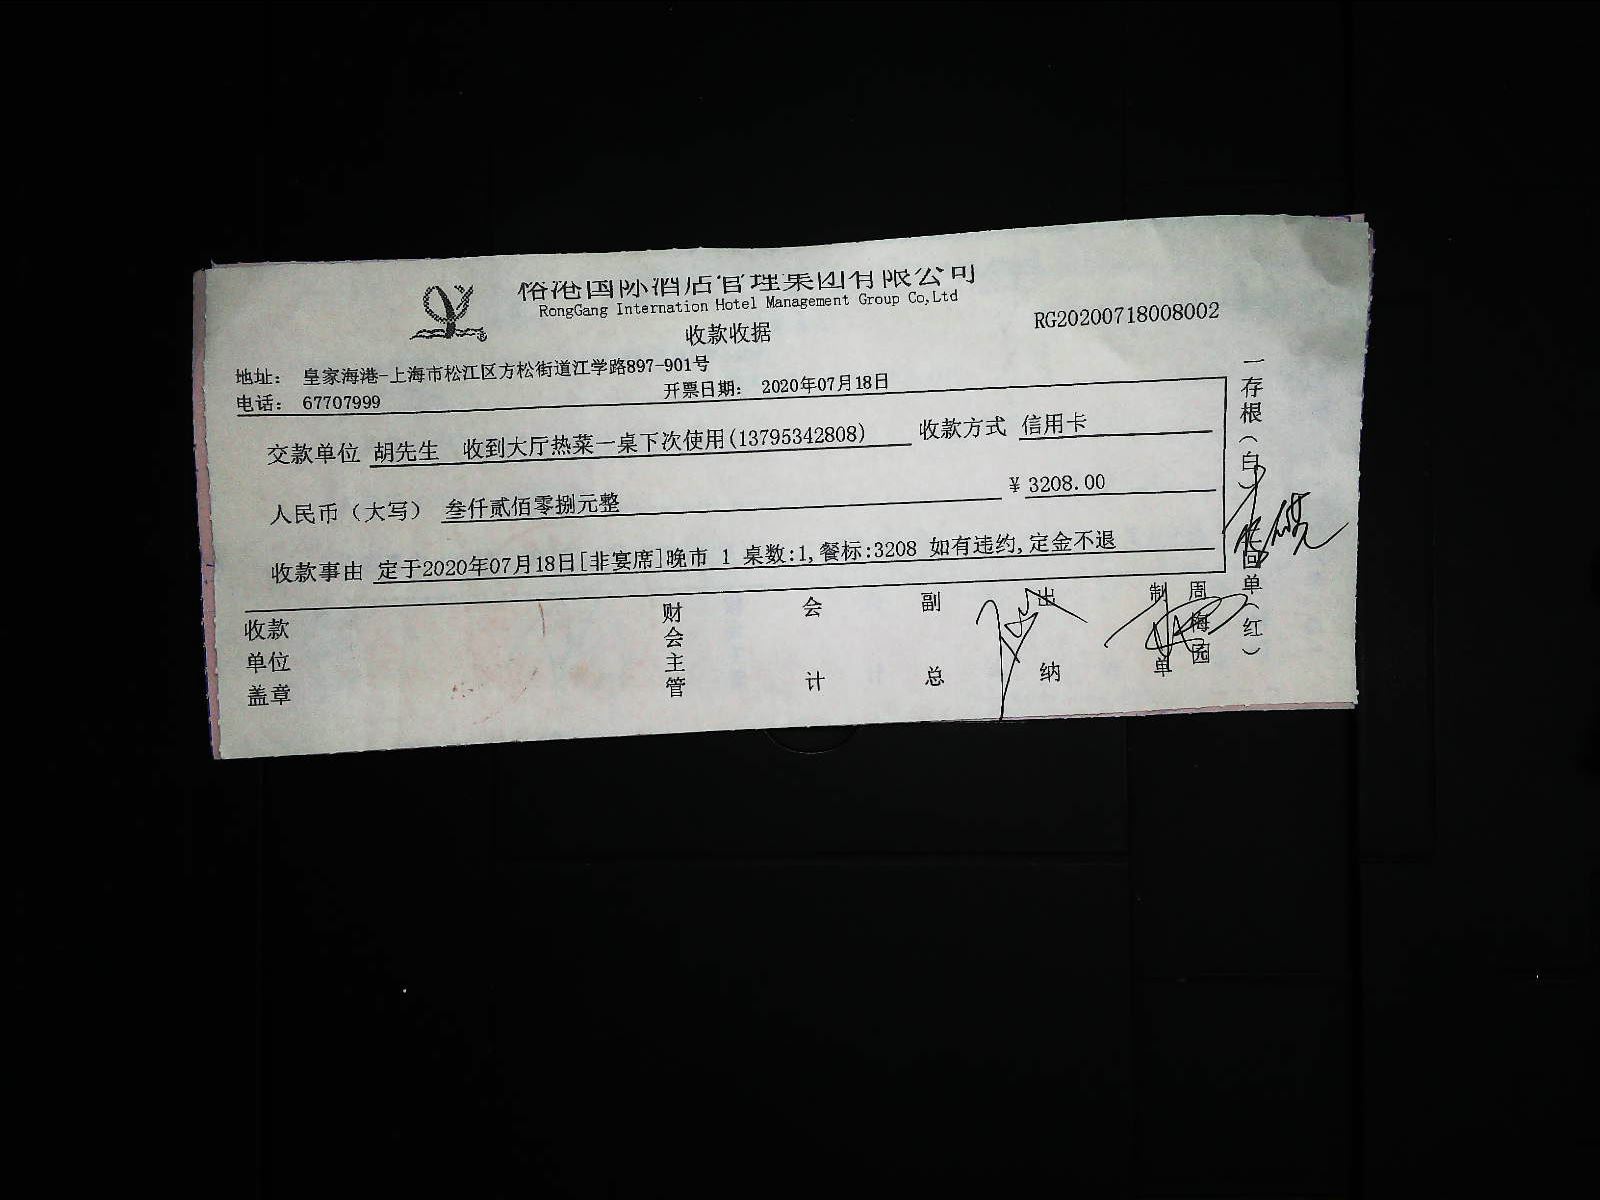 俗港国际酒店管理集团有限公司
RongGang Internation Hotel Management Group Co,Ltd
收款收据
RG20200718008002
地址： 皇家海港-上海市松江区方松街道江学路897-901号
电话： 67707999
开票日期： 2020年07月18日
交款单位 胡先生 收到大厅热菜一桌下次使用(13795342808) 收款方式 信用卡
人民币（大写） 叁仟贰佰零捌元整 ¥3208.00
收款事由 定于2020年07月18日[非宴席]晚市 1 桌数:1,餐标:3208 如有违约,定金不退
一存根（白）
回单（红）
收款单位盖章
财会主管
会计
副总
出纳
制单
周梅园